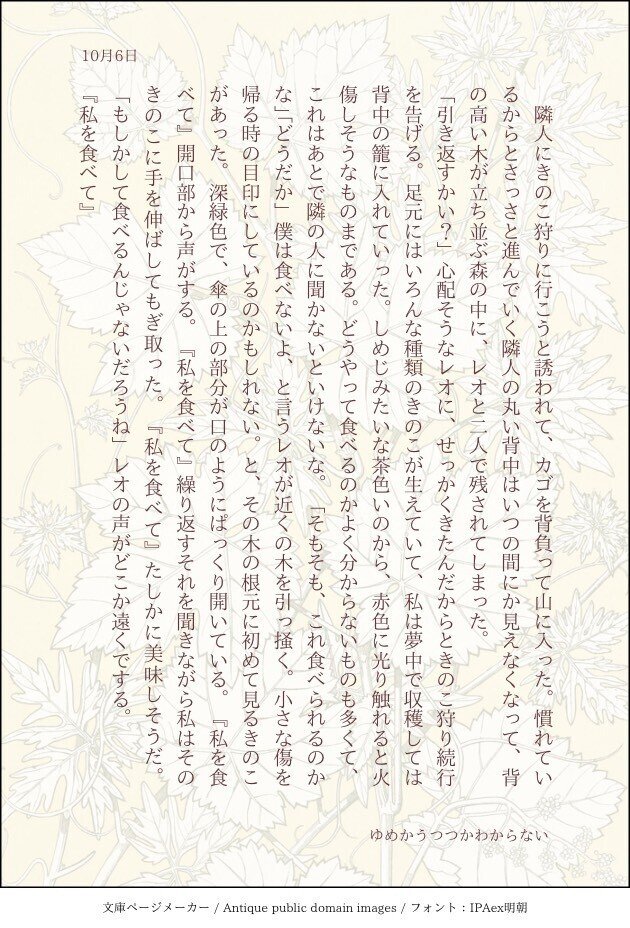 10月6日
　隣人にきのこ狩りに行こうと誘われて、カゴを背負って山に入った。慣れてい
るからとさっさと進んでいく隣人の丸い背中はいつの間にか見えなくなって、背
の高い木が立ち並ぶ森の中に、レオと二人で残されてしまった。
「引き返すかい？」心配そうなレオに、せっかくきたんだからときのこ狩り続行
を告げる。足元にはいろんな種類のきのこが生えていて、私は夢中で収穫しては
背中の籠に入れていった。しめじみたいな茶色いのから、赤色に光り触れると火
傷しそうなものまである。どうやって食べるのかよく分からないものも多くて、
これはあとで隣の人に聞かないといけないな。「そもそも、これ食べられるのか
な」「どうだか」僕は食べないよ、と言うレオが近くの木を引っ掻く。小さな傷を
帰る時の目印にしているのかもしれない。と、その木の根元に初めて見るきのこ
があった。深緑色で、傘の上の部分が口のようにぱっくり開いている。『私を食
べて』開口部から声がする。『私を食べて』繰り返すそれを聞きながら私はその
きのこに手を伸ばしてもぎ取った。『私を食べて』たしかに美味しそうだ。
「もしかして食べるんじゃないだろうね」レオの声がどこか遠くでする。
『私を食べて』
ゆめかうつつかわからない
文庫ページメーカー / Antique public domain images / フォント：IPAex明朝